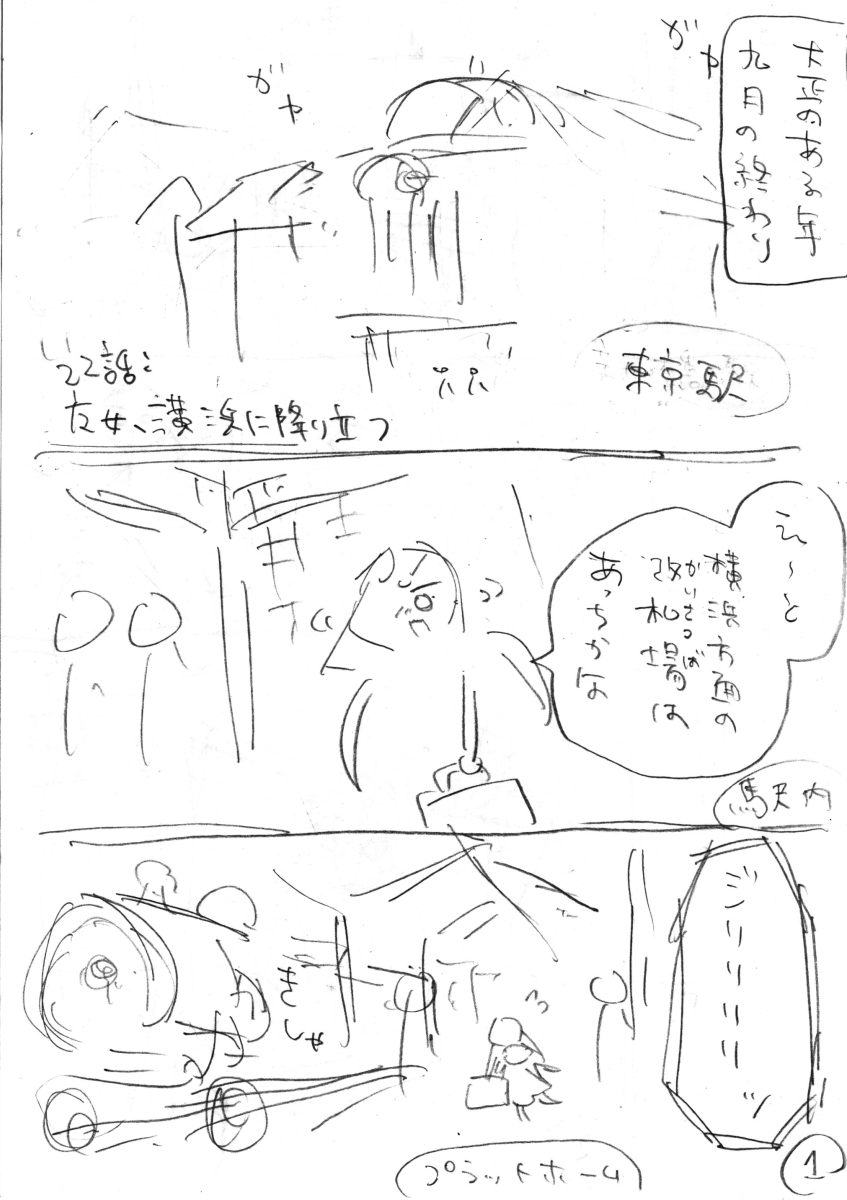 大正のある年
九月の終わり
ガヤ
ガヤ
東京駅
22話:
乙女、横浜に降り立つ
え〜と
横浜方面の
改札場は
かいさつば
あっちかな
駅内
ジリリリリリッ
きしゃ
プラットホーム
1